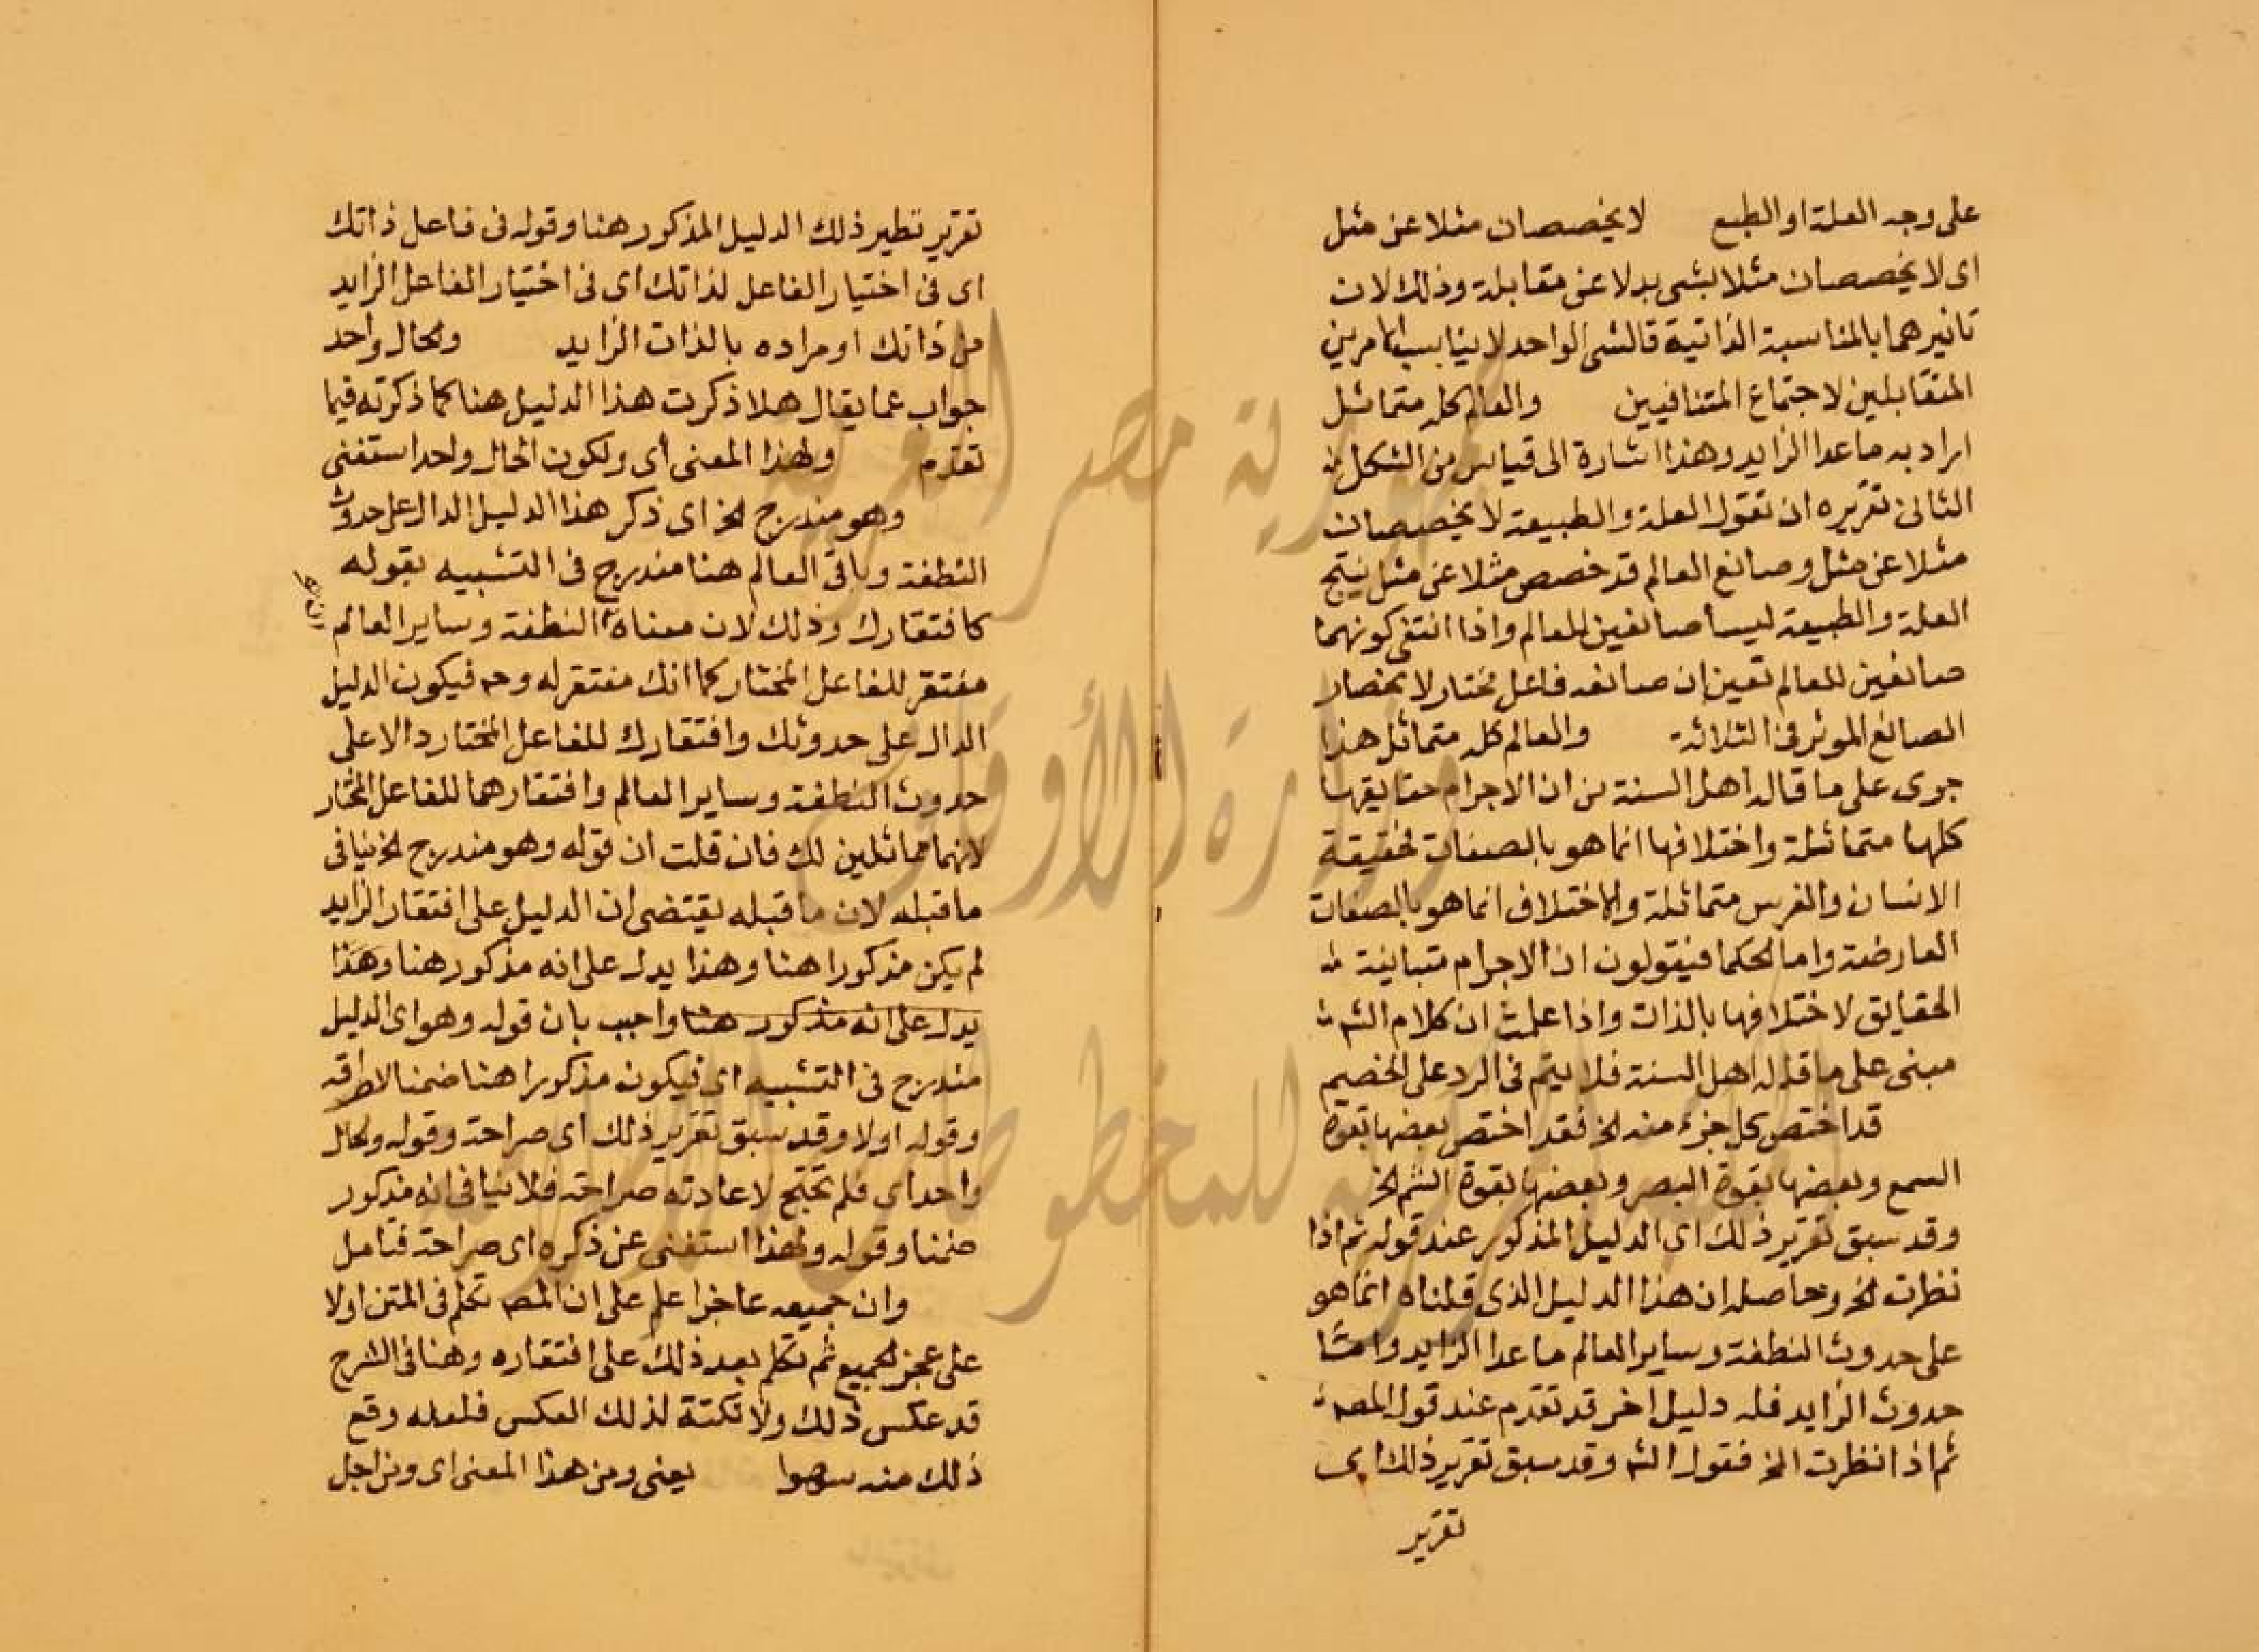 على وجه العلة او الطبع لا يخصصان مثلا عن مثل
اى لا يخصصان مثلا بشى بدلا عن مقابلة وذلك لان
تاثيرهما بالمناسبة الذاتية فالشى الواحد لا يناسب الامرين
المتقابلين لاجتماع المتنافيين والعالم كله متماثل
اراد به ماعدا الزايد وهذا اشارة الى قياس من الشكل
الثانى تقريره ان تقول العلة والطبيعة لا يخصصان
مثلا عن مثل وصانع العالم قد خصص مثلا عن مثل ينتج
العلة والطبيعة ليسا صانعين للعالم واذا انتفى كونهما
صانعين للعالم تعين ان صانعه فاعل مختار لانحصار
الصانع الموثر فى الثلاثة والعالم كله متماثل هذا
جرى على ما قاله اهل السنة من ان الاجرام حقايقها
كلها متماثلة واختلافها انما هو بالصفات فحقيقة
الانسان والفرس متماثلة والاختلاف انما هو بالصفات
العارضة واما الحكما فيقولون ان الاجرام متباينة
الحقايق لاختلافها بالذات واذا علمت ان كلام الشه
مبنى على ما قاله اهل السنة فلا يتم فى الرد على الخصيم
قد اختص كل جزء منه الخ فقد اختص بعضها بقوة
السمع وبعضها بقوة البصر وبعضها بقوة الشم الخ
وقد سبق تقرير ذلك اى الدليل المذكور عند قوله ثم اذا
نظرت الخ وحاصله ان هذا الدليل الذى قلناه انما هو
على حدوث النطفة وساير العالم ماعدا الزايد واما
حدوث الزايد فله دليل اخر قد تقدم عند قول المصه
ثم اذا نظرت الخ فقول الشه وقد سبق تقرير ذلك اى
تقرير
تقرير نظير ذلك الدليل المذكور هنا وقوله فى فاعل ذاتك
اى فى اختيار الفاعل لذاتك اى فى اختيار الفاعل الزايد
من ذاتك او مراده بالذات الزايد والحال واحد
جواب عما يقال هلا ذكرت هذا الدليل هنا كما ذكرته فيما
تقدم ولهذا المعنى اى ولكون الحال واحدا استغنى
وهو مندرج الخ اى ذكر هذا الدليل الدال على حدوث
النطفة وباقى العالم هنا مندرج فى التشبيه بقوله
كافتقارك وذلك لان معناه النطفة وساير العالم
مفتقر للفاعل المختار كما انك مفتقر له وح فيكون الدليل
الدال على حدوثك وافتقارك للفاعل المختار دالا على
حدوث النطفة وساير العالم وافتقارهما للفاعل المختار
لانهما مماثلين لك فان قلت ان قوله وهو مندرج الخ ينافى
ما قبله لان ما قبله يقتضى ان الدليل على افتقار الزايد
لم يكن مذكورا هنا وهذا يدل على انه مذكور هنا وهذا
يدل على انه مذكور هنا واجيب بان قوله وهو اى الدليل
مندرج فى التشبيه اى فيكون مذكورا هنا ضمنا لا طراقه
وقوله اولا وقد سبق تقرير ذلك اى صراحة وقوله والحال
واحد اى فلم نحتج لاعادته صراحة فلا ينافى انه مذكور
ضمنا وقوله ولهذا استغنى عن ذكره اى صراحة فتامل
وان جميعه عاجز اعلم على ان المصه تكلم فى المتن اولا
على عجز الجميع ثم تكلم بعد ذلك على افتقاره وهنا فى الشرح
قد عكس ذلك ولا نكتة لذلك العكس فلعله وقع
ذلك منه سهوا يعنى ومن هذا المعنى اى ومن اجل